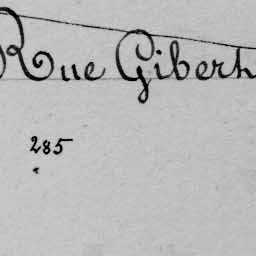 Rue Gibert
285